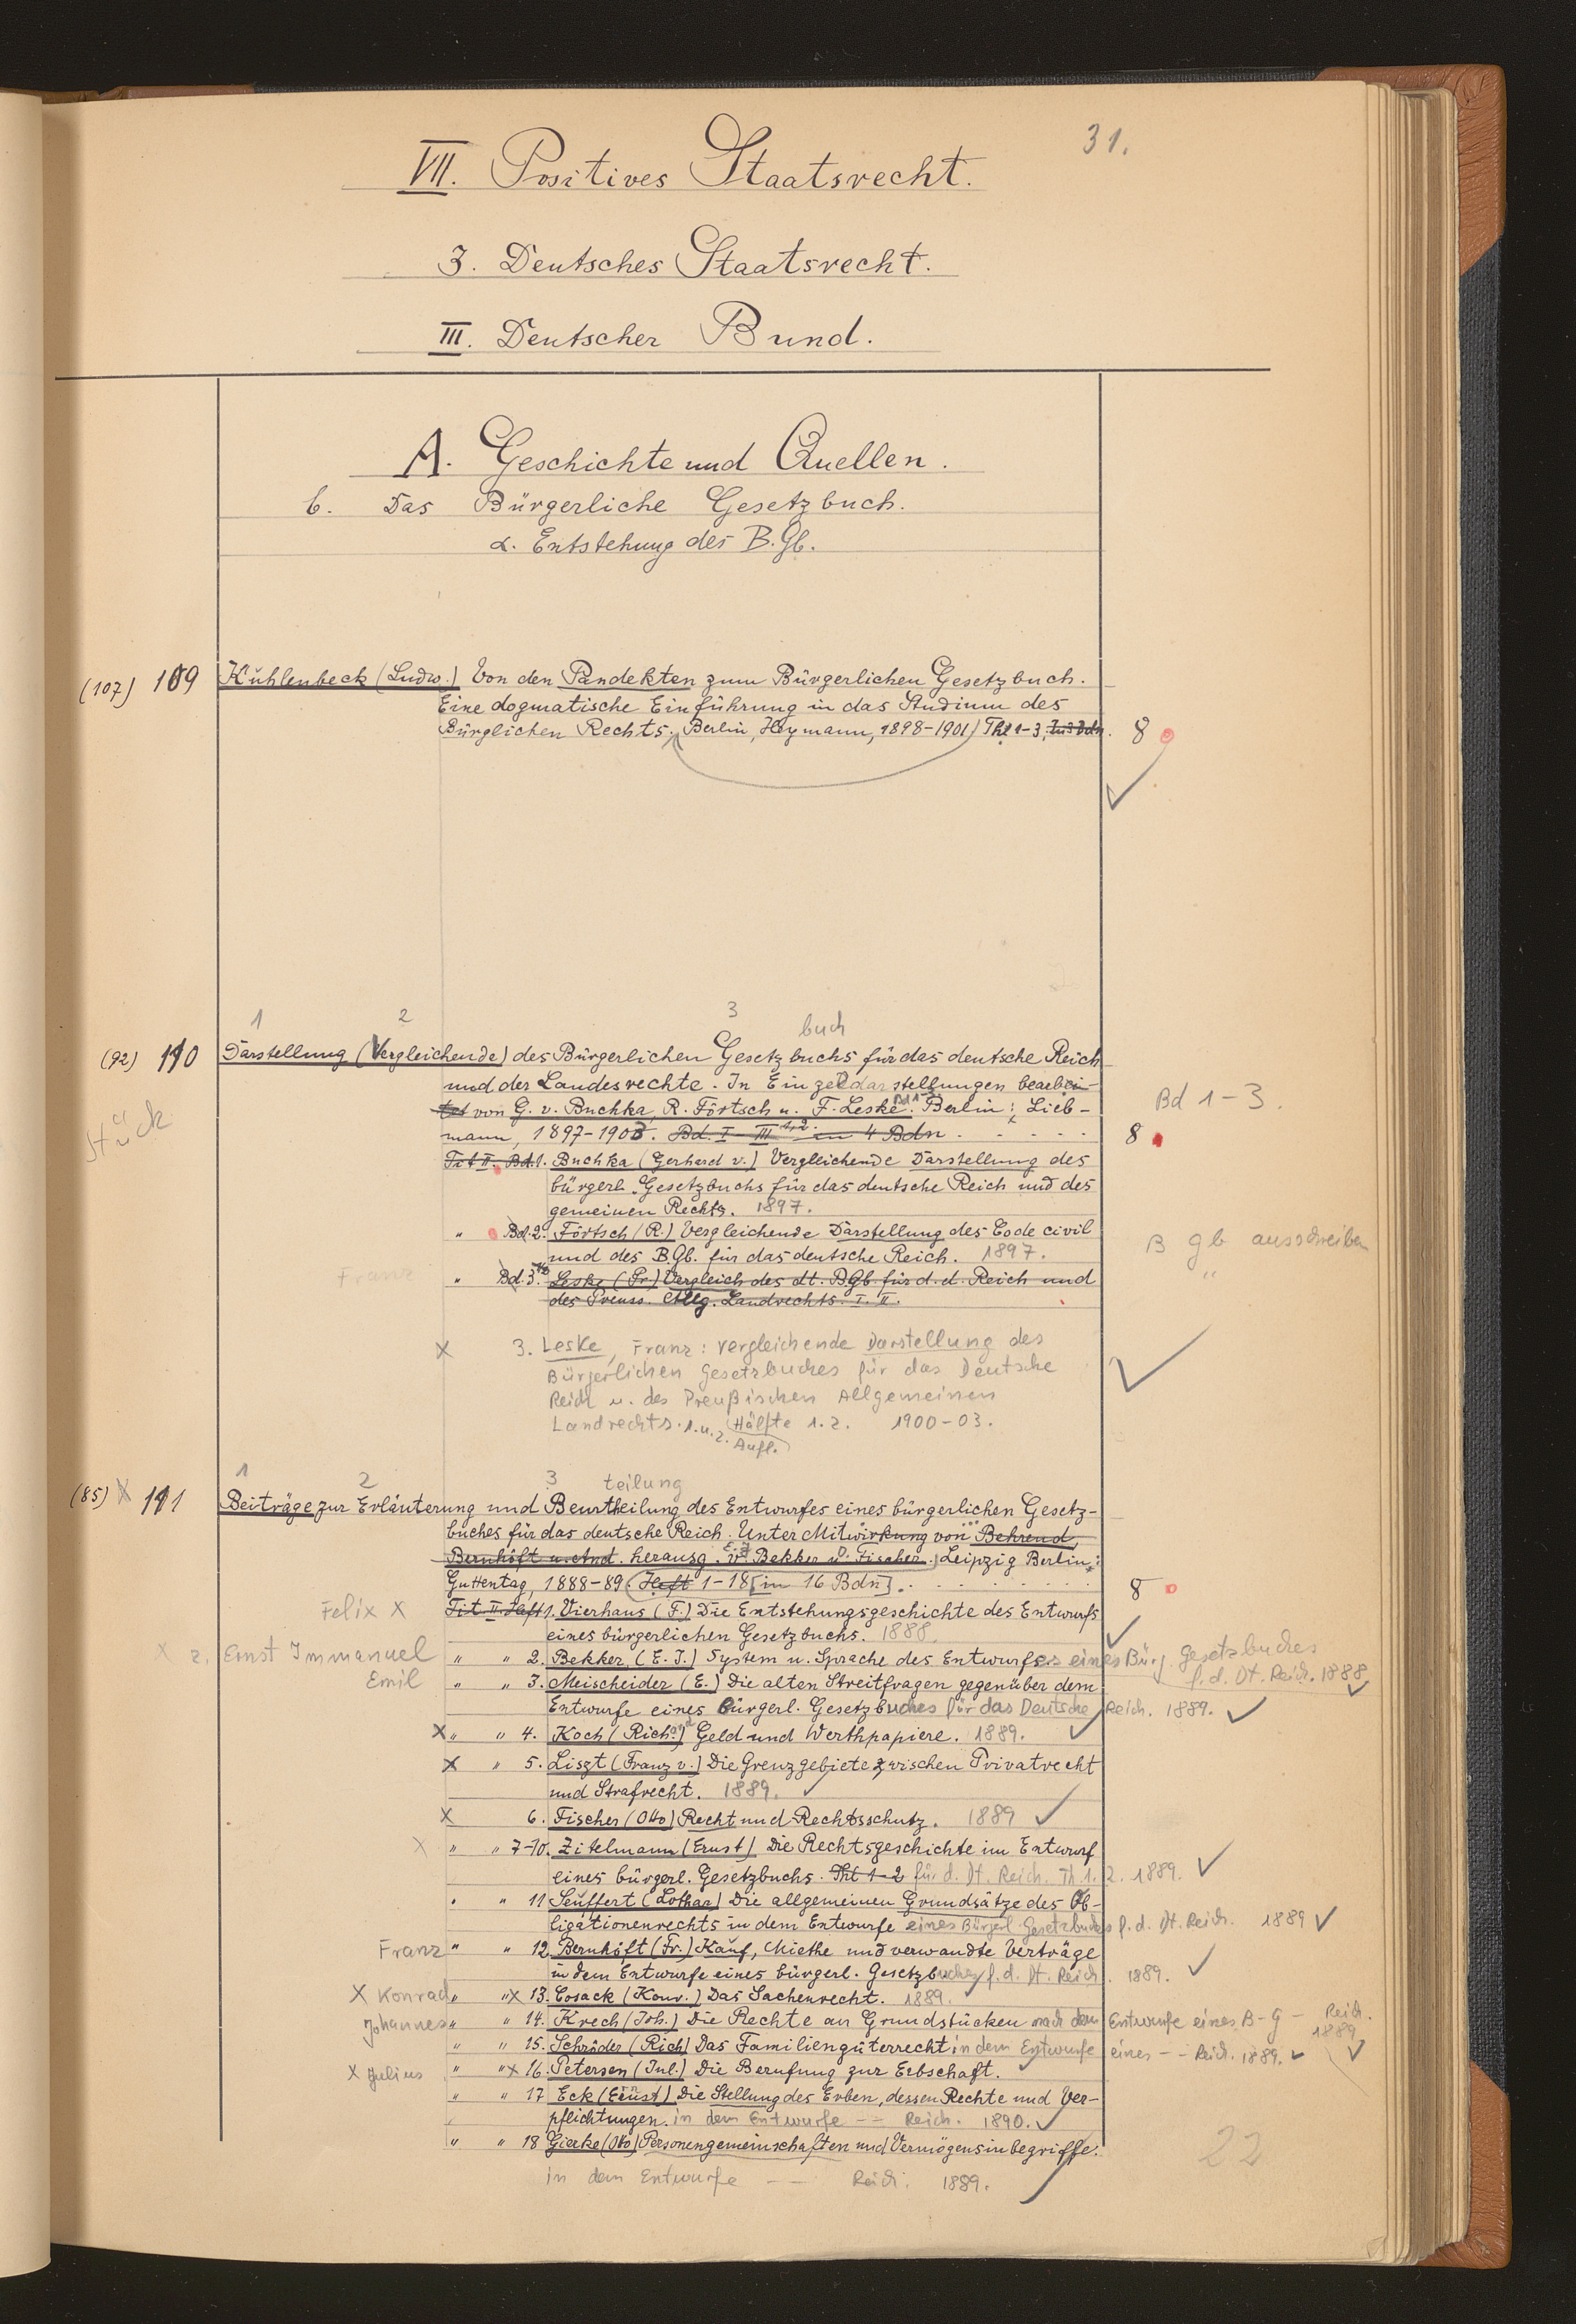 31.
VII. Positives Staatsrecht.
3. Deutsches Staatsrecht.
III. Deutscher Bund.
A. Geschichte und Quellen.
b. Das Bürgerliche Gesetzbuch.
α. Entstehung des B.Gb.
(107) 109 Kuhlenbeck (Ludw.) Von den Pandekten zum Bürgerlichen Gesetzbuch.
Eine dogmatische Einführung in das Studium des
Bürglichen Rechts. Berlin, Heymann, 1898-1901) Thl 1-3, In 3 Bdn. 8
1 2 3 buch
(92) 110 Darstellung (Vergleichende) des Bürgerlichen Gesetzbuchs für das deutsche Reich
und der Landesrechte. In Einzeldarstellungen bearbei-
tet von G. v. Buchka, R. Förtsch u. F. Leske. Bd 1-3 Berlin: Lieb- Bd 1-3.
Stück
mann, 1897-1903. Bd. I-III 1,2. in 4 Bdn. 8
Tit II. Bd. 1. Buchka (Gerhard v.) Vergleichende Darstellung des
bürgerl. Gesetzbuchs für das deutsche Reich und des
gemeinen Rechts. 1897.
" Bd. 2. Förtsch (R.) Vergleichende Darstellung des Code civil
und des B.Gb. für das deutsche Reich. 1897. B gb ausschreiben
Franz " Bd. 3. Leske (Fr.) Vergleich des dt. BGb. für d. d. Reich und "
des Preuss. Allg. Landrechts. I. II.
X 3. Leske, Franz: Vergleichende Darstellung des
Bürgerlichen Gesetzbuches für das Deutsche
Reich u. des Preußischen Allgemeinen
Landrechts. 1. u. 2. Hälfte 1. 2. 1900-03.
Aufl.
1 2 3 teilung
(85) X 111 Beiträge zur Erläuterung und Beurtheilung des Entwurfes eines bürgerlichen Gesetz-
buches für das deutsche Reich. Unter Mitwirkung von Behrend,
Bernhöft u. And. herausg. v. E. J. Bekker u. O. Fischer.) Leipzig Berlin:
Guttentag, 1888-89 (Heft 1-18 [in 16 Bdn]. 8
Felix X Tit II. Heft 1. Vierhaus (F.) Die Entstehungsgeschichte des Entwurfs
eines bürgerlichen Gesetzbuchs. 1888.
X 2. Ernst Immanuel " " 2. Bekker, (E. J.) System u. Sprache des Entwurfs es eines Bürg. Gesetzbuches
f. d. Dt. Reich. 1888
Emil " " 3. Meischeider (E.) Die alten Streitfragen gegenüber dem
Entwurfe eines bürgerl. Gesetzbuches für das Deutsche Reich. 1889.
X " " 4. Koch (Rich. ard) Geld und Werthpapiere. 1889.
X " 5. Liszt (Franz v.) Die Grenzgebiete zwischen Privatrecht
und Strafrecht. 1889.
X 6. Fischer (Otto) Recht und Rechtsschutz. 1889
X " " 7-10. Zitelmann (Ernst) Die Rechtsgeschichte im Entwurf
eines bürgerl. Gesetzbuchs. Tht 1-2 für d. Dt. Reich. Th 1. 2. 1889.
" " 11 Seuffert (Lothar) Die allgemeinen Grundsätze des Ob-
ligationenrechts in dem Entwurfe eines Bürgerl. Gesetzbuches f. d. Dt. Reich. 1889
Franz " " 12 Bernhöft (Fr.) Kauf, Miethe und verwandte Verträge
in dem Entwurfe eines bürgerl. Gesetzbuches f. d. Dt. Reich. 1889.
X Konrad " " X 13. Cosack (Konr.) Das Sachenrecht. 1889.
Johannes " " 14. Krech (Joh.) Die Rechte an Grundstücken nach dem Entwurfe eines B-G - Reich.
1889
" " 15. Schröder (Rich) Das Familiengüterrecht in dem Entwurfe eines -- Reich. 1889.
X Julius " " X 16. Petersen (Jul.) Die Berufung zur Erbschaft.
" " 17 Eck (Ernst) Die Stellung des Erben, dessen Rechte und Ver-
pflichtungen. in dem Entwurfe -- Reich. 1890.
" " 18 Gierke (Otto) Personengemeinschaften und Vermögensinbegriffe.
in dem Entwurfe -- Reich. 1889.
22